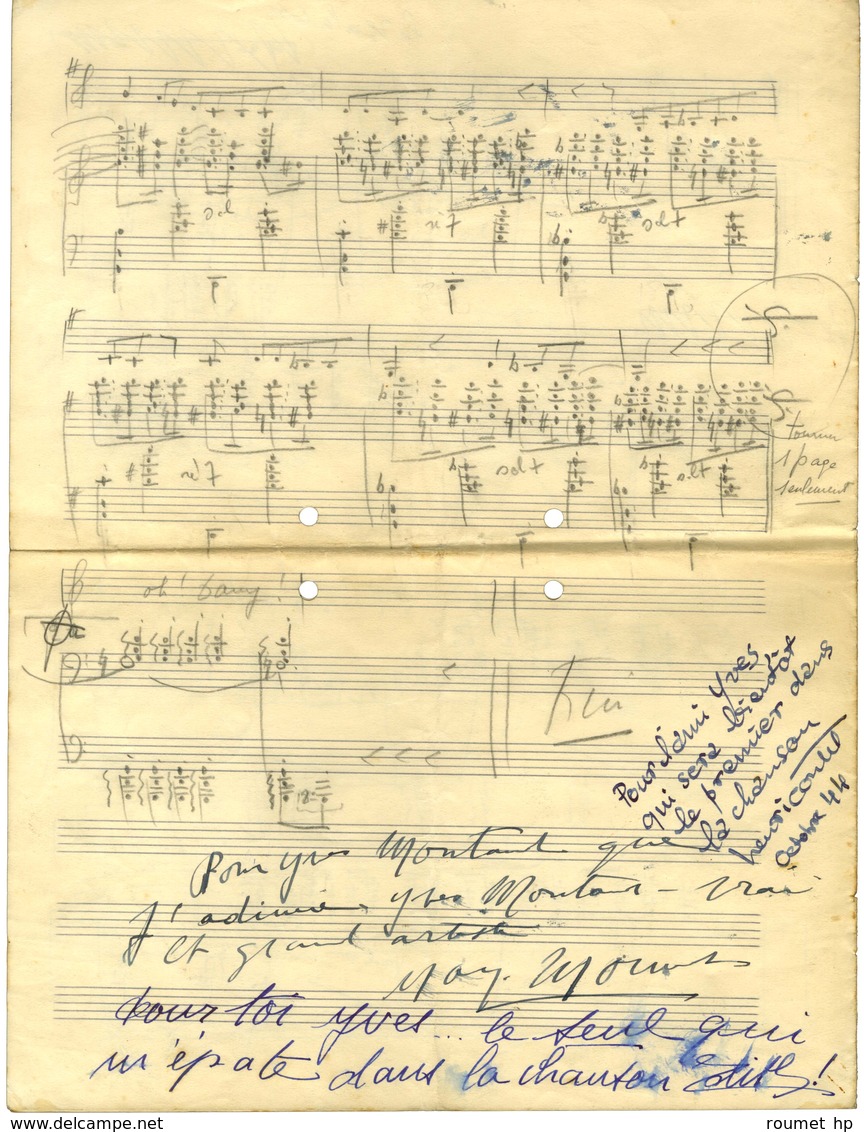 sol
ré 7
sol 7
ré 7
sol 7
si 7
tourner
1 page
seulement
oh! bang!
Fini
Pour l'ami Yves
qui sera bientôt
le premier dans
la chanson
henri contet
Octobre 44
Pour Yves Montant que
J'admire Yves Montant - vrai
et grand artiste
pour toi Yves... le seul qui
m'épate dans la chanson Edith!
www.roumet hp